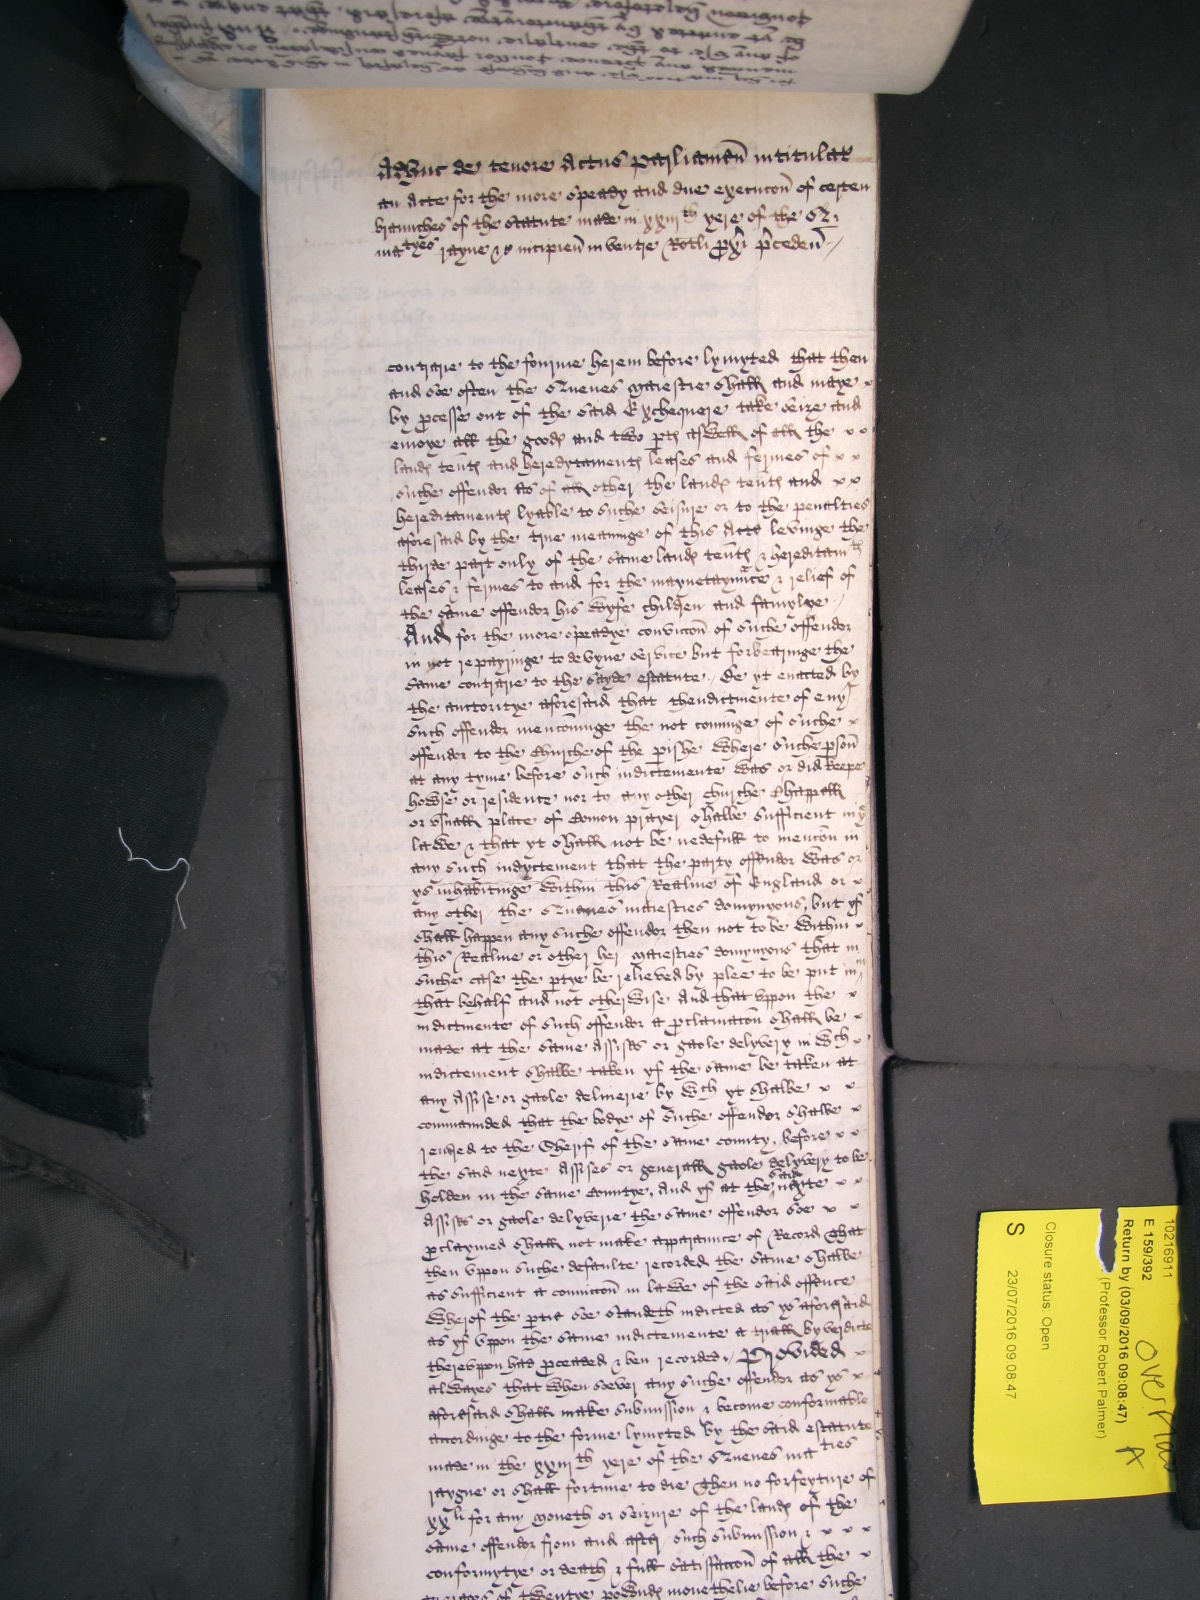 Adhuc de tenore Actus Parliamen̄ intitulat
an Acte for the more speady and due execucōn of certen
braunches of the Statute made in xxiijth yere of the Q.
matyes rayne &c incipien̄ in ventre Rotli p̄xi p̄ceden̄
contrarie to the fourme herein before lymyted that then
and soe often the Quenes maiestie shall and maye
by pcesse out of the said Exchequere take seize and
enioye all the goodes and two ptes aswell of all the
landes tentes and heredytamentes leases and fermes of
suche offendor as of all other the landes tentes and
hereditamentes lyable to suche seisure or to the penalties
aforesaid by the true meaninge of this Acte levinge the
thirde part only of the same landes tentes & hereditamtes
leases & fermes to and for the mayneteynnce & relief of
the same offendor his wyfe children and famylye
And for the more speadye conviccōn of suche offendor
in not repayringe to devyne service but forbearinge the
same contrarie to the sayde estatute. Be yt enacted by
the auctoritye aforesaid that thendictmente of eny
such offendor mencōninge the not comm̄ge of suche
offendor to the Churche of the pishe where suche psōn
at any tyme before such indictemente was or did keepe
howse or residence nor to any other Churche Chappall
or vsuall place of Comon prayer shalbe sufficient in ye
lawe & that yt shall not be nedefull to mencōn in
any such indyctement that the party offendor was or
ys inhabitinge within this Realme of England or
any other the Quenes maiesties domynyons, but yf
shall happen any suche offendor then not to be within
this Realme or other her maiesties domynyons that in
suche case the ptye be relieved by plee to be put in
that behalf and not otherwise And that vppon the
indictmente of such offendor a pclamacōn shall be
made at the same Assises or gaole delyvery in wch
indictement shalbe taken yf the same be taken at
any Assise or gaole deliverie by wch yt shalbe
commaunded that the bodye of suche offendor shalbe
rendred to the Sherif of the same county, before
the said nexte Assises or generall gaole delyvery to be
holden in the same Countye, And yf at the said nexte
Assises or gaole delyverie the same offendor soe
pclaymed shall not make apparance of Record That
then vppon suche defaulte recorded the same shalbe
as sufficient a conviccōn in lawe of the said offence
wherof the ptie soe standeth indicted as ys aforesaid
as yf vppon the same indictemente a triall by verdicte
therevppon had pceaded & ben recorded. Provided
alwayes that when soever any suche offendor as ys
aforesaid shall make submission & become conformable
accordinge to the forme lymyted by the said estatute
made in the xxiijth yere of the Quenes maties
raygne or shall fortune to die Then no forfeyture of
xxli for any moneth or seizure of the landes of the
same offendor from and after such submission &
conformytye or death & full satisfaccōn of all the
arrerages of twentye powndes monethelie before suche
10216911
E 159/392
Return by (03/09/2016 09:08:47)
(Professor Robert Palmer)
Closure status: Open
S 23/07/2016 09:08:47